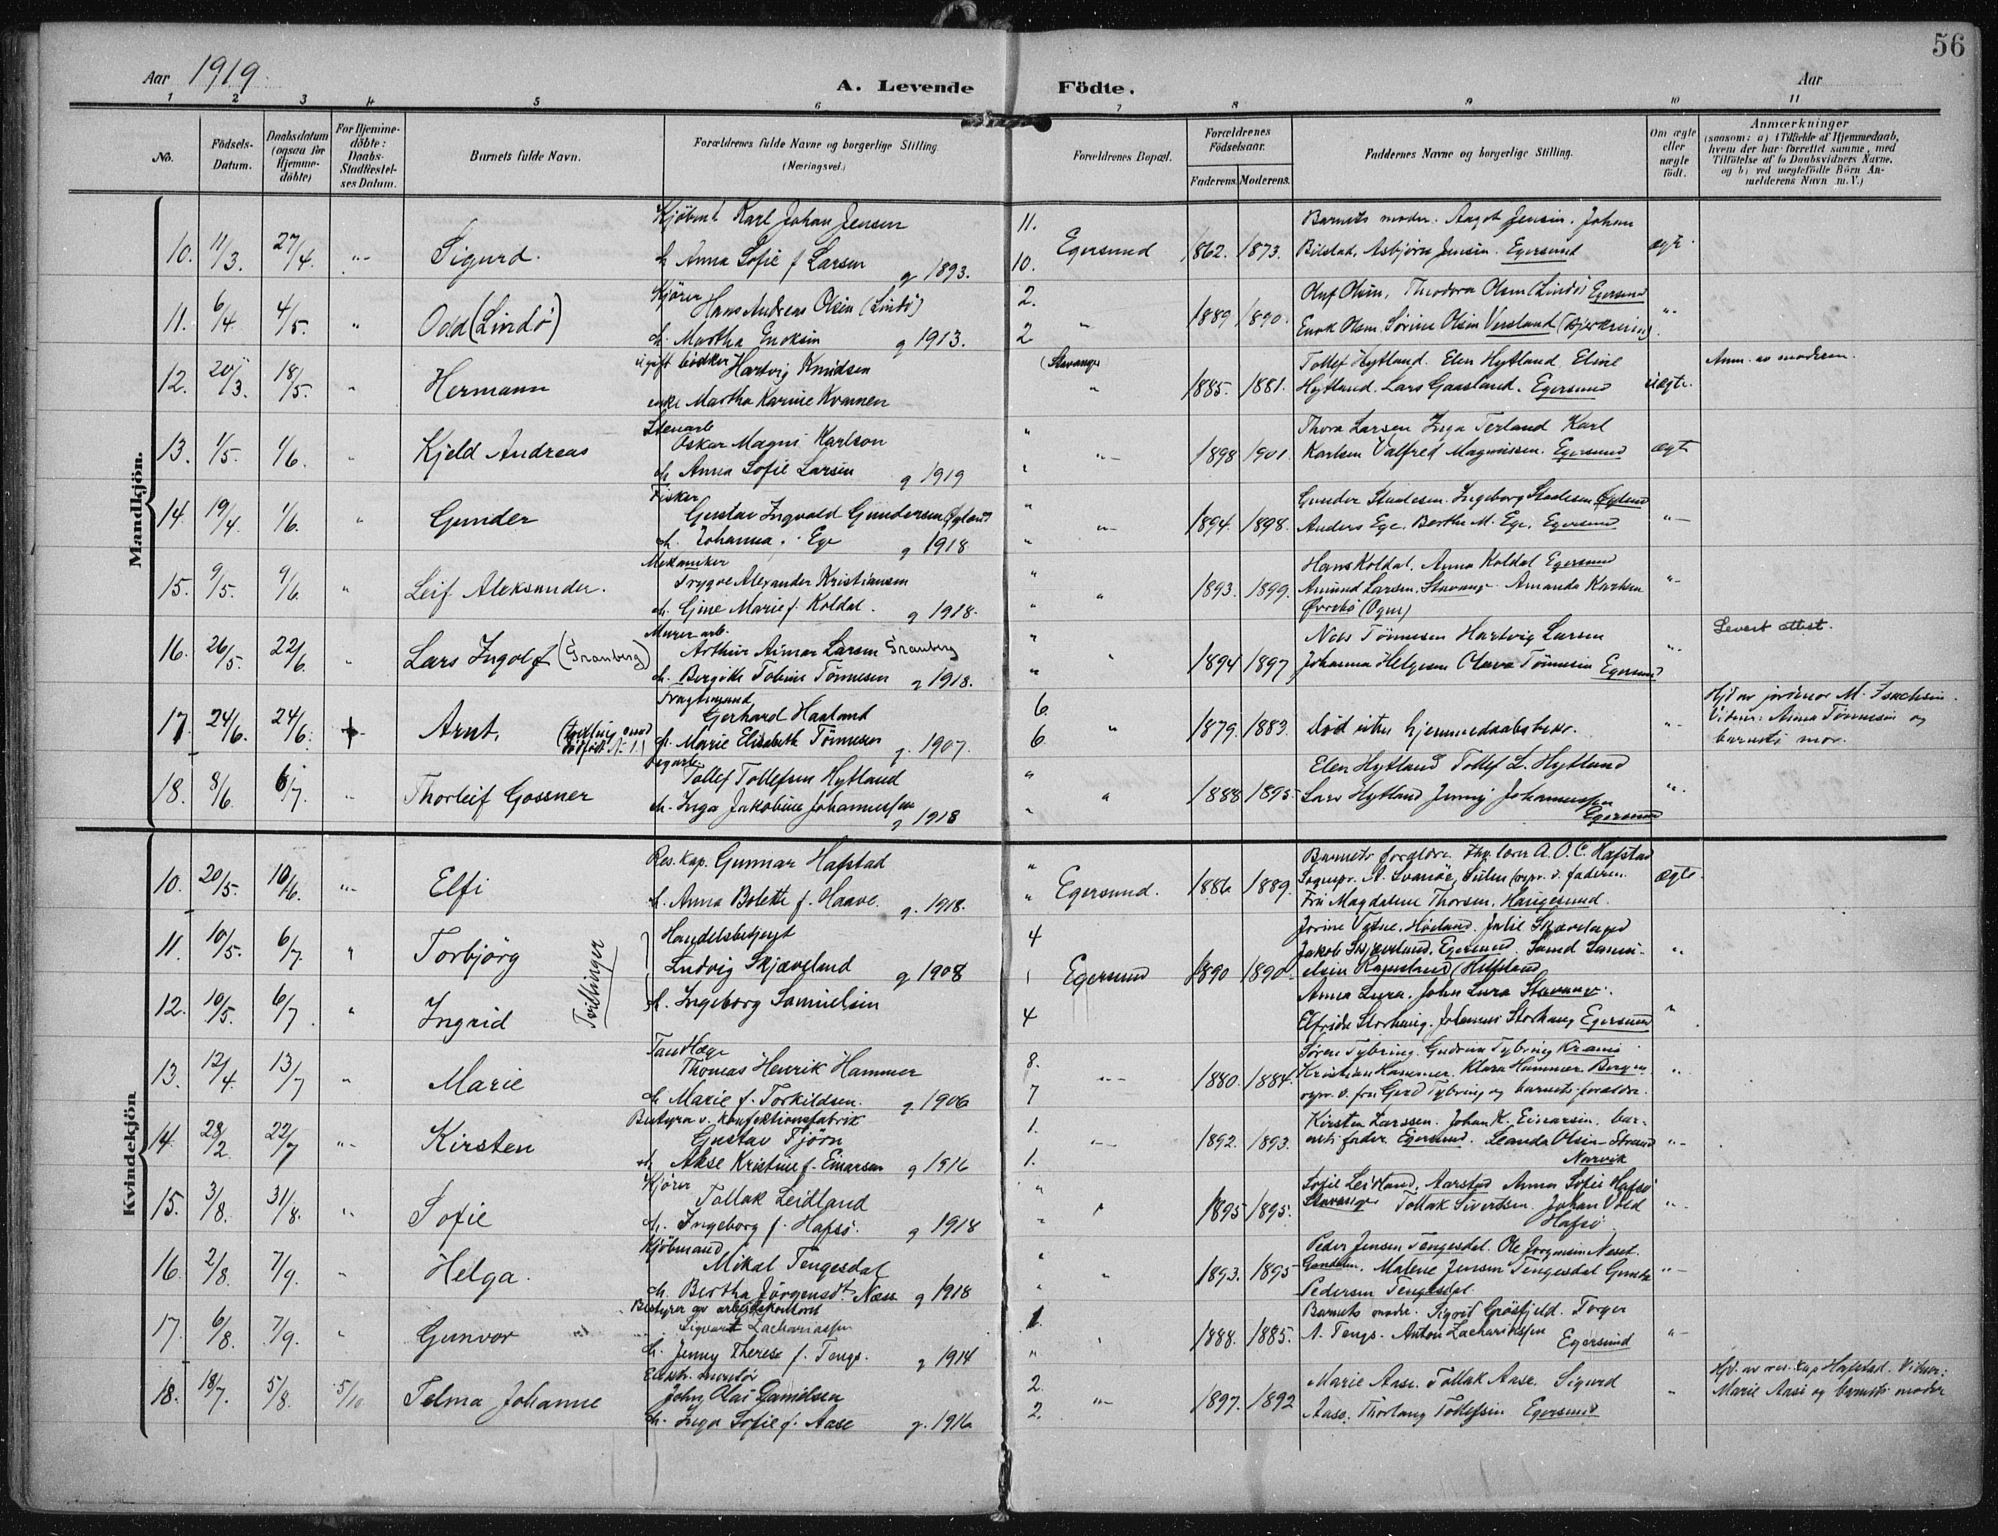 56
Aar 1919.
A. Levende Födte.
Aar
1 2 3 4 5 6 7 8 9 10 11
No.
Födsels-Datum.
Daabsdatum (ogsaa for Hjemmedöbte)
For Hjemmedöbte: Daabs-Stadfæstelses Datum.
Barnets fulde Navn.
Forældrenes fulde Navne og borgerlige Stilling
(Næringsvei.)
Forældrenes Bopæl.
Forældrenes Födselsaar.
Faderens. Moderens.
Faddernes Navne og borgerlige Stilling.
Om ægte eller uægte födt.
Anmærkninger
(saasom: a) i Tilfælde af Hjemmedaab, hvem der har forrettet samme, med Tilföielse af to Daabsvidners Navne, og b) ved uægtefödte Börn Anmelderens Navn m. V.)
Mandkjön.
Kjöbm. Karl Johan Jensen 11. Barnets moder. Aagot Jensen. Johan
10. 11/3. 27/4. "- Sigurd. Egersund 1862. 1873. Bilstad. Asbjørn Jensen. Egersund ægte.
h. Anna Sofie f Larsen g 1893. 10.
Kjører Hans Andreas Olsen (Lindö) 2. Oluf Olsen, Theodora Olsen Lindö Egersund
11. 6/4 4/5. " Odd (Lindö) " 1889 1890. "
h. Martha Enoksen g 1913. 2 Enok Olsen. Sørine Olsen Versland (Bjerkreim)
ugift bödker Hartvig Knudsen (Stavanger Tollef Hytland. Elen Hytland Anm. av moderen.
12. 20/3 18/5. " Hermann " 1885. 1881. Hytland. Lars Gaasland. Egersund uægte.
enke Martha Karine Kvamen
Stenarb. Oskar Magni Karlson " Thora Larsen Inga Terland Karl
13. 1/5. 1/6. Kjeld Andreas "- 1898 1901. Karlsen Valfred Magnussen. Egersund ægte
h. Anna Sofie Larsen g 1919
Fisker Gustav Ingvald Gundersen Øgland " Gunder Staalesen. Ingeborg Staalesen Øgland
14. 19/4 1/6. " Gunder "- 1894. 1898. Anders Ege. Berthe M. Ege. Egersund "-
h. Johanna Ege g 1918 "
Mekaniker Trygve Alexander Kristiansen " Hans Koldal, Anna Koldal Egersund
15. 9/5. 9/6. " Leif Aleksander. " 1893. 1899. Amund Larsen. Stavanger Amanda Karlsen "-
h. Gine Marie f. Koldal. g 1918. " (Ogna)
Murer arb. Arthur Aimar Larsen Granberg " Tönnesen Hartvig Larsen Levert attest.
16. 26/5. 22/6. " Lars Ingolf (Granberg) " 1894 1897 Johanna Helgesen Olava Tönnesen Egersund "
h. Bergitte Tobine Tönnesen g 1918. "
Fragtemand Gerhard Haaland 6. Hjd av jordmor M. Isachsen.
17. 24/6. 24/6. + Arnt. " 1879. 1883. Död efter hjemmedaabsbekr. "- Vidner: Anna Tönnesen og
h. Marie Elisabeth Tönnesen g. 1907. 6. barnets mor.
Tollef Tollefsen Hytland " Elen Hytland Tollef L. Hytland
18. 8/6. 6/7. "- Thorleif Gossner " 1888 1895 Lars Hytland Jenny Johannessen "
h. Inga Jakobine Johannessen g 1918 " Egersund
Kvindekjön
Res. kap. Gunnar Hafstad " Barnets forældre. A. O. C. Hafstad
10. 20/5. 10/6. "- Elfi Egersund. 1886 1889. Sognepr. A. Svanöe, (repr. v. faderen. ægte
h. Anna Bolette f. Haave. g. 1918. " Fru Magdalene Thorsen. Haugesund.
Handelsbetjent 4
11. 10/5. 6/7. " Torbjörg Ludvig Skjæveland g 1908 Egersund 1890 1890 Jakob Skjæveland. Egersund.
Tvillinger
12. 10/5. 6/7. " Ingrid h. Ingeborg Samuelsen 4 Anna Lura. John Lura Stavanger. "
Elfride Storhaug. Johannes Storhaug Egersund
Tandlæge Thomas Henrik Hammer 8. Søren Tybring. Gudrun Tybring
13. 12/4 13/7 " Marie "- 1880. 1884. Kristian Hammer. Klara Hammer Bergen "
h. Marie f. Torkildsen. g 1906 7 repr. v. fru Gerd Tybring og barnets forældre.
Bestyrer v. konfektionsfabrik Gustav Tjörn 1. Kirsten Larssen. Johan K. Einarsen, bar-
14. 28/2. 22/7 "- Kirsten "- 1892. 1893. nets fader Egersund. Leanda Olsen Strand "-
h. Akse Kristine f. Einarsen g 1916 1. Narvik
Kjörer Tollak Leidland " Sofie Leidland, Aarstad Anna Sofie Hafsö
15. 3/8. 31/8. " Sofie " 1895 1895. Stavanger Tollak Sivertsen. Johan Vold "-
h. Ingeborg f. Hafsö. g 1918 " Hafsö
Kjöbmand Mikal Tengesdal " Peder Jensen Tengesdal. Ole Jörgensen Næset
16. 2/8. 7/9. " Helga. " 1893. 1895 Malene Jensen Tengesdal "-
h. Bertha Jörgensdt. Næse g 1918 " Pedersen Tengesdal
Bestyrer av arbeidskontoret Sigvart Zachariassen 1. Barnets moder. Sigrid Grösfjeld. Torger
17. 6/8. 7/9. " Gunvor " 1888. 1885. A. Tengs. Anton Zachariassen Egersund "-
h. Jenny Therese f. Tengs. g 1914 "
Elektr. montör John Olai Gamelsen 2. Marie Aase. Tollak Aase. Sigurd Hjd. av res. kap Hafstad. Vidner:
18. 18/7. 5/8. 5/10 Telma Johanne "- 1897. 1892 Aase. Thorlaug Tollefsen Egersund " Marie Aase og barnets moder
h. Inga Sofie f. Aase g. 1916 2.